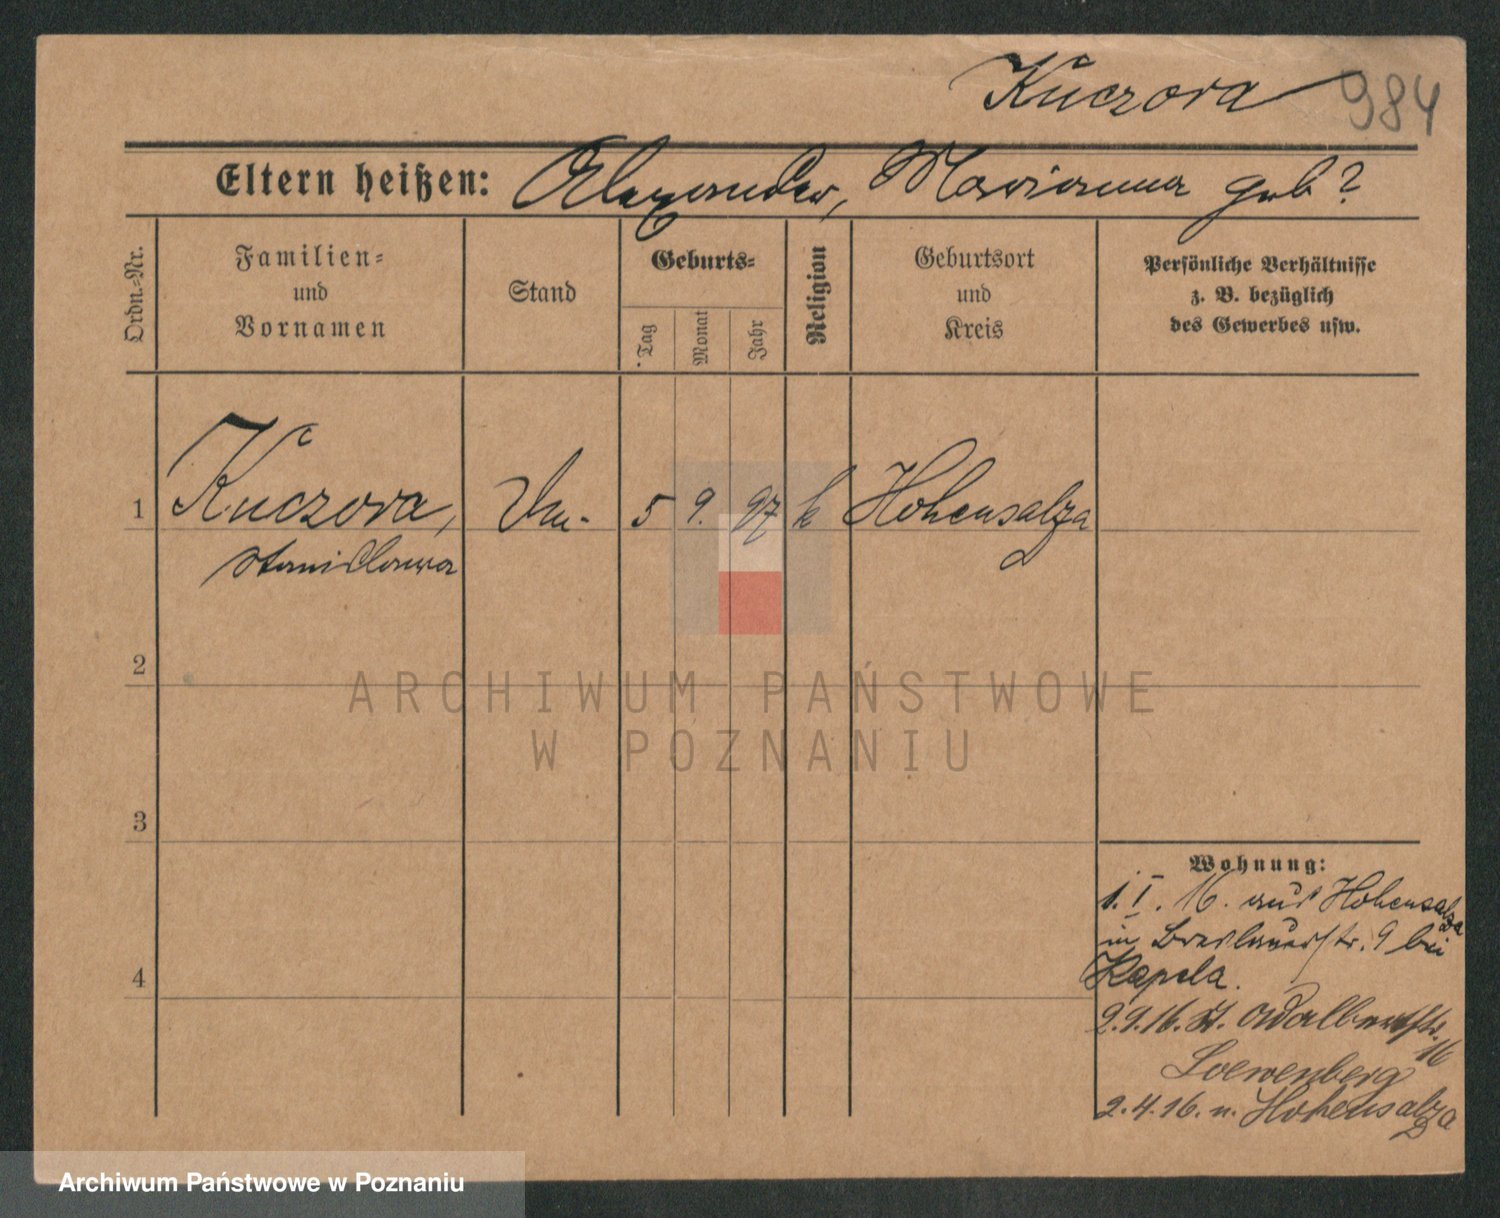 Kuczora 984
Eltern heißen: Alexander, Marianna geb?
Ordn.-Nr.
Familien-
und
Vornamen
Stand
Geburts-
Tag
Monat
Jahr
Religion
Geburtsort
und
Kreis
Persönliche Verhältnisse
z. B. bezüglich
des Gewerbes usw.
1 Kuczora, 5 9. 97 k Hohensalza
Stanislawa
2
ARCHIWUM PAŃSTWOWE
W POZNANIU
3
Wohnung:
1. I. 16. aus Hohensalza
in Breslauerstr. 9 bei
Kapela.
2.9.16. St. Adalbertstr.
16
Loewenberg
2.4.16. n. Hohensalza
4
Archiwum Państwowe w Poznaniu